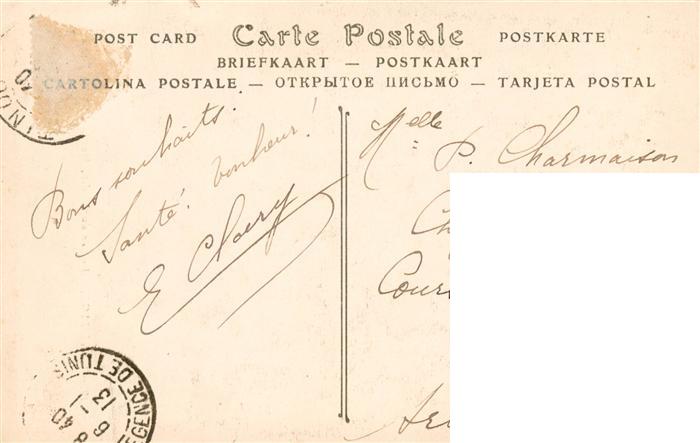 POST CARD Carte Postale POSTKARTE
BRIEFKAART — POSTKAART
CARTOLINA POSTALE — ОТКРЫТОЕ ПИСЬМО — TARJETA POSTAL
Bons souhaits.
Santé! bonheur!
E
Melle P. Charmaison
GENCE DE TUNIS
8 40
6 - 1
13